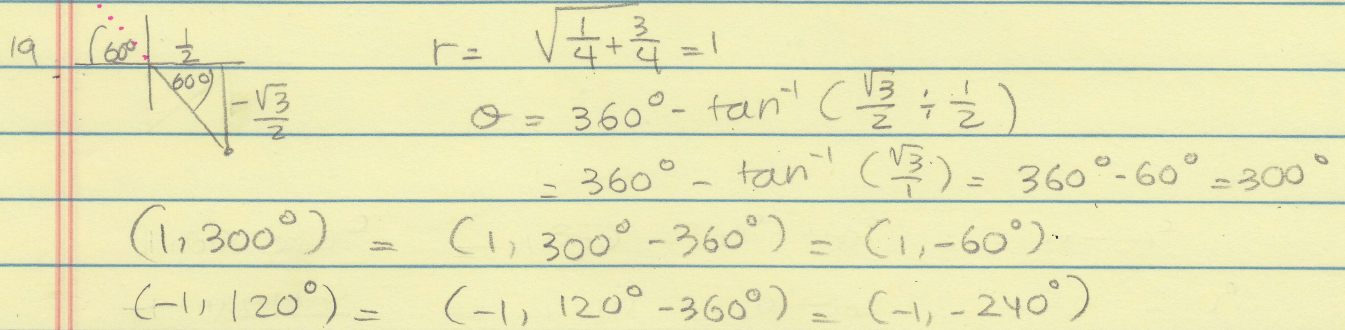 19 60° 1/2 r = √(1/4 + 3/4) = 1
60° -√3/2 θ = 360° - tan⁻¹ (√3/2 ÷ 1/2)
= 360° - tan⁻¹ (√3/1) = 360° - 60° = 300°
(1, 300°) = (1, 300° - 360°) = (1, -60°)
(-1, 120°) = (-1, 120° - 360°) = (-1, -240°)